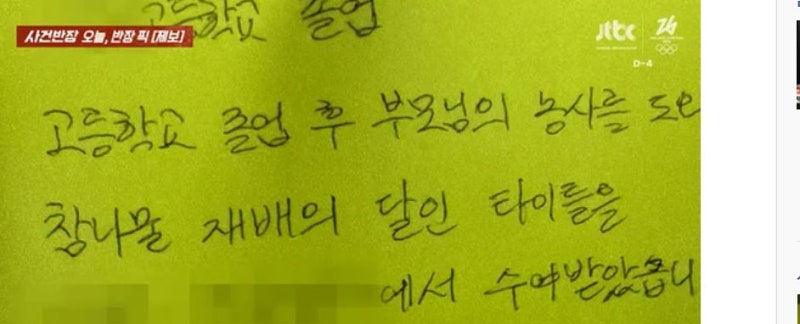 사건반장 오늘, 반장 픽 [제보]
고등학교 졸업
jtbc
26
D-4
고등학교 졸업 후 부모님의 농사를 도으
참나물 재배의 달인 타이틀을
에서 수여받았습니